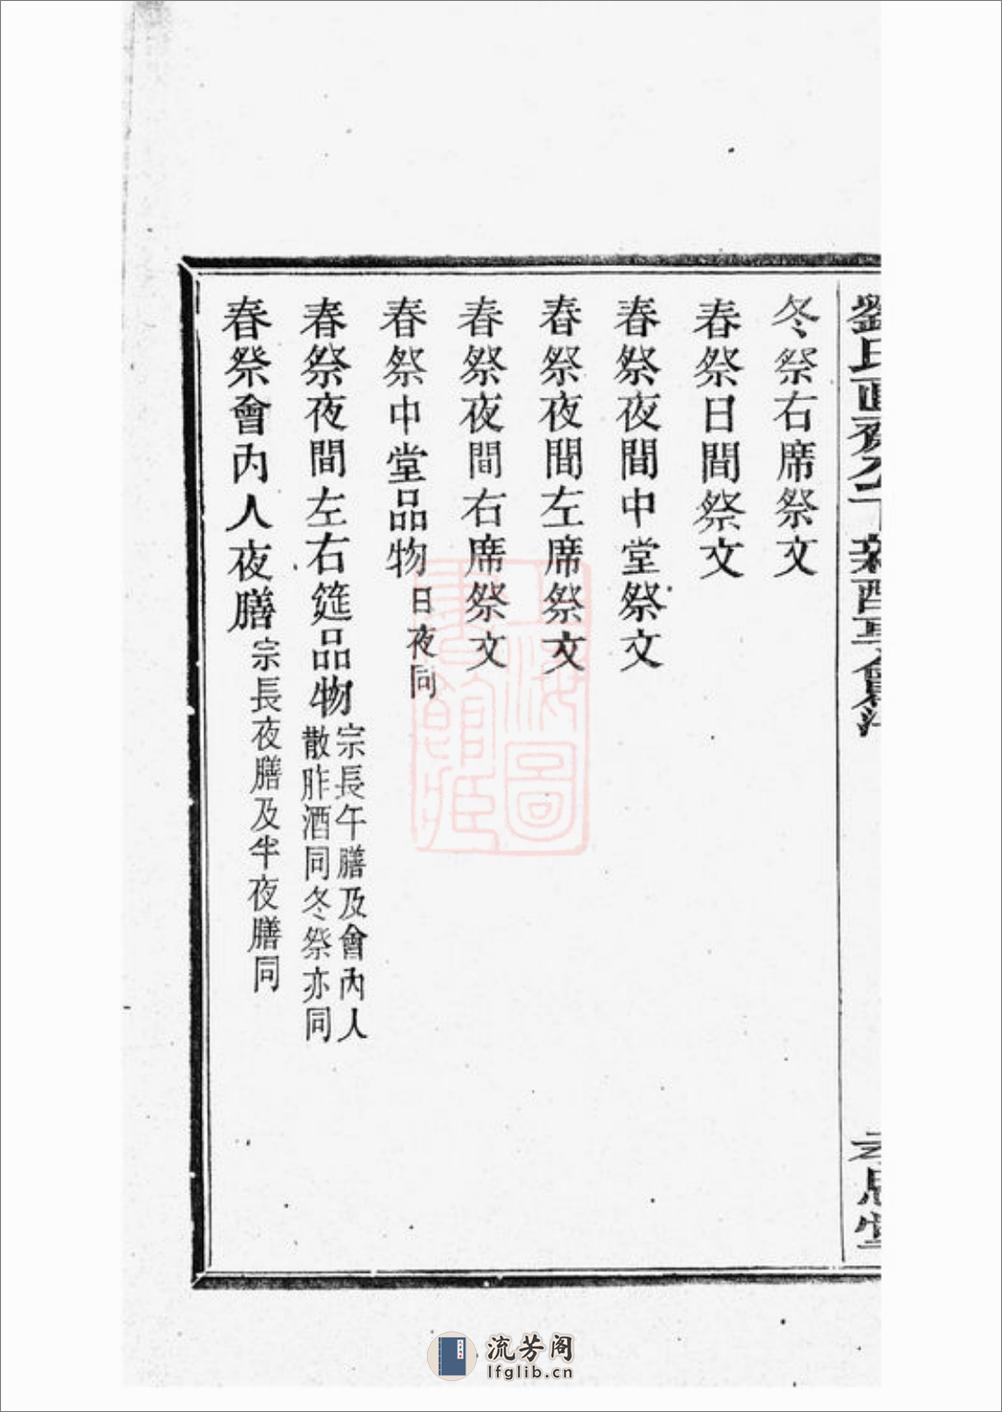 冬祭右席祭文
春祭日間祭文
春祭夜間中堂祭文
春祭夜間左席祭文
春祭夜間右席祭文
春祭中堂品物日夜同
春祭夜間左右筵品物宗長午膳及會內人
散胙酒同冬祭亦同
春祭會內人夜膳宗長夜膳及半夜膳同
上海圖
書館臧
流芳阁
lfglib.cn